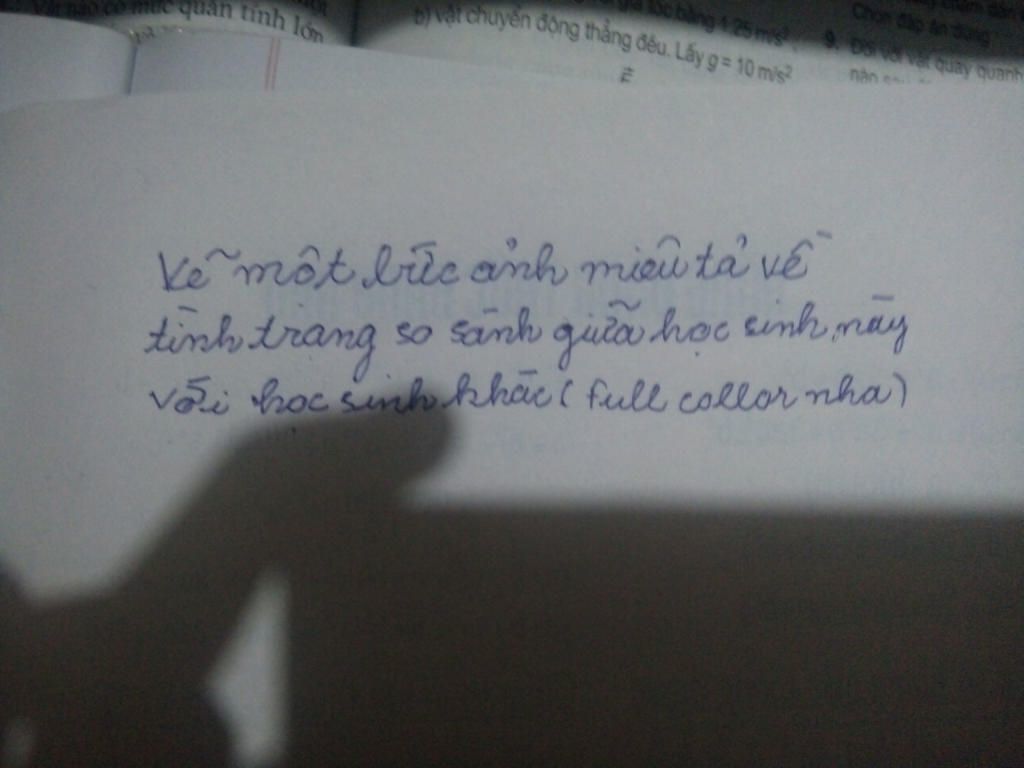 Vật nào có mức quán tính lớn
b) vật chuyển động thẳng đều. Lấy g = 10 m/s²
gia tốc bằng 1,25 m/s².
Chọn đáp án đúng
9. Đối với vật quay quanh
Vẽ một bức ảnh miêu tả về
tình trạng so sánh giữa học sinh này
với học sinh khác ( full collor nha)